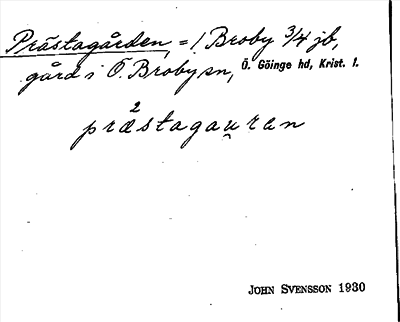 Prästagården, = 1 Broby 3/4 jb,
gård i Ö. Broby sn, Ö. Göinge hd, Krist. l.
2
præstagau̯ran
JOHN SVENSSON 1930